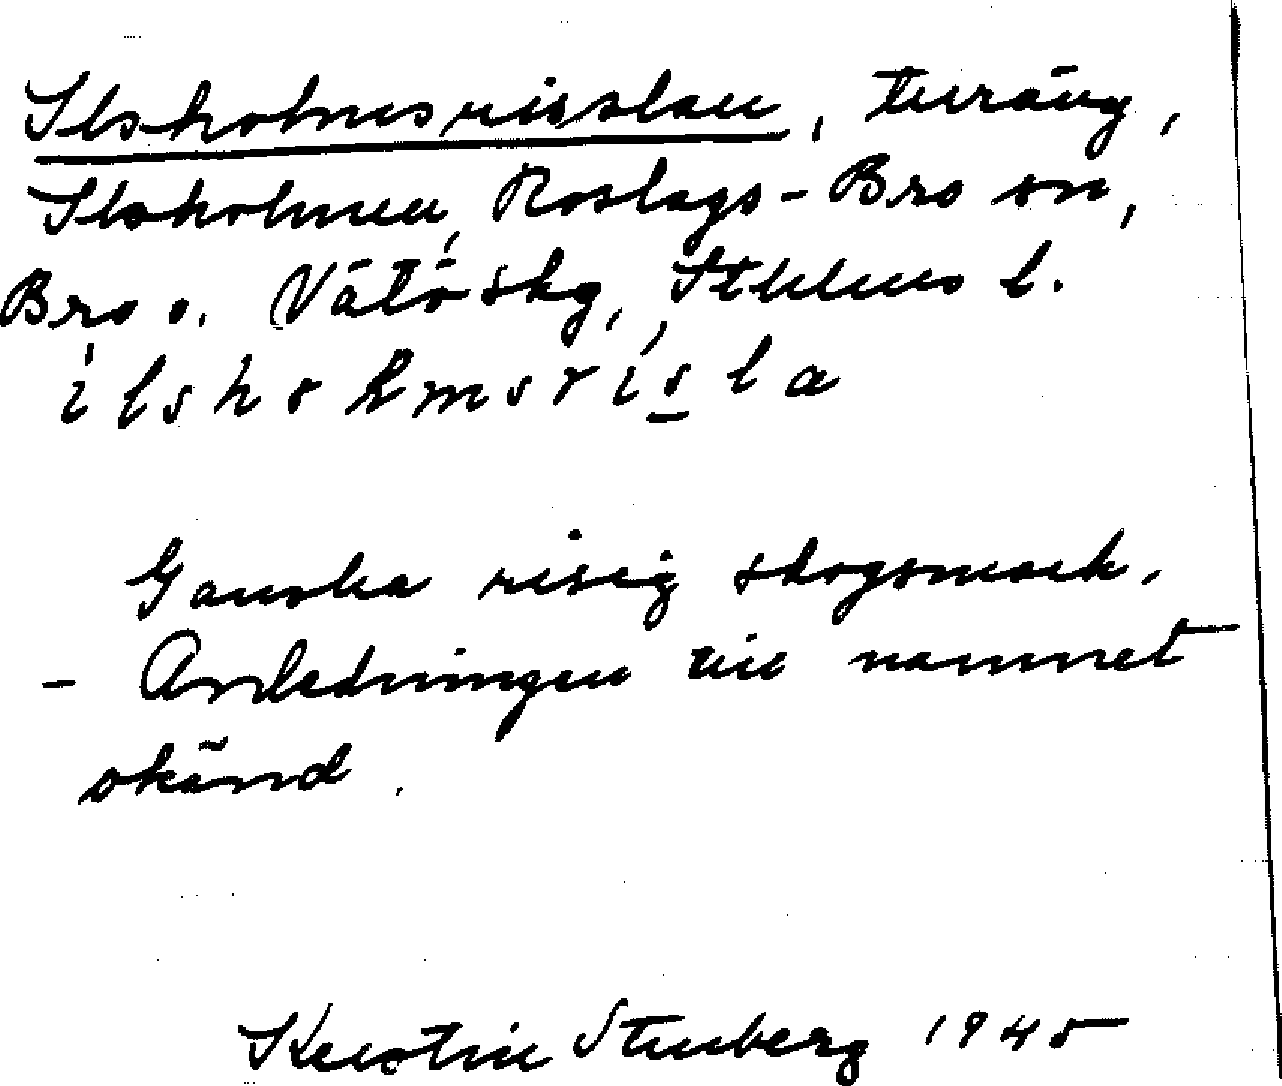 Ilsholmsrisslan, terräng,
Ilsholmen, Roslags-Bro sn,
Bro o. Vätö skg, Sthlms l.
ilshoḷmsri̇́sla
Ganska risig skogsmark.
- Anledningen till namnet
okänd.
Kerstin Stenberg 1945